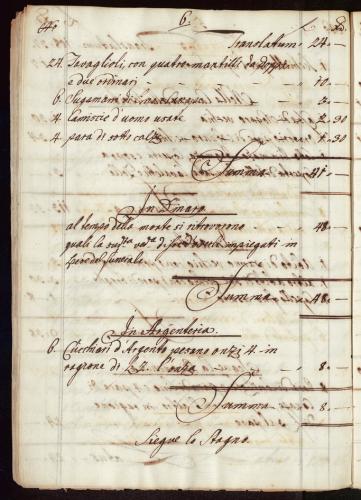 6.
Translatum 24 —
24. Tavaglioli, con quatro mantilli da
e due ordinari — 10 —
6. Sugamani di
4 Camiscie d'uomo usate — 2 30
4 para di sotto calze — 1 30
Summa
In Denaro
al tempo della morte si ritrovorono — 48 —
quali la impiegati in
spese del funerale
Summa 48 —
In Argenteria
6. Cucchiari d'Argento pesano onze 4 in
ragione di l'onza — 8 —
Summa 8 —
Siegue lo Stagno